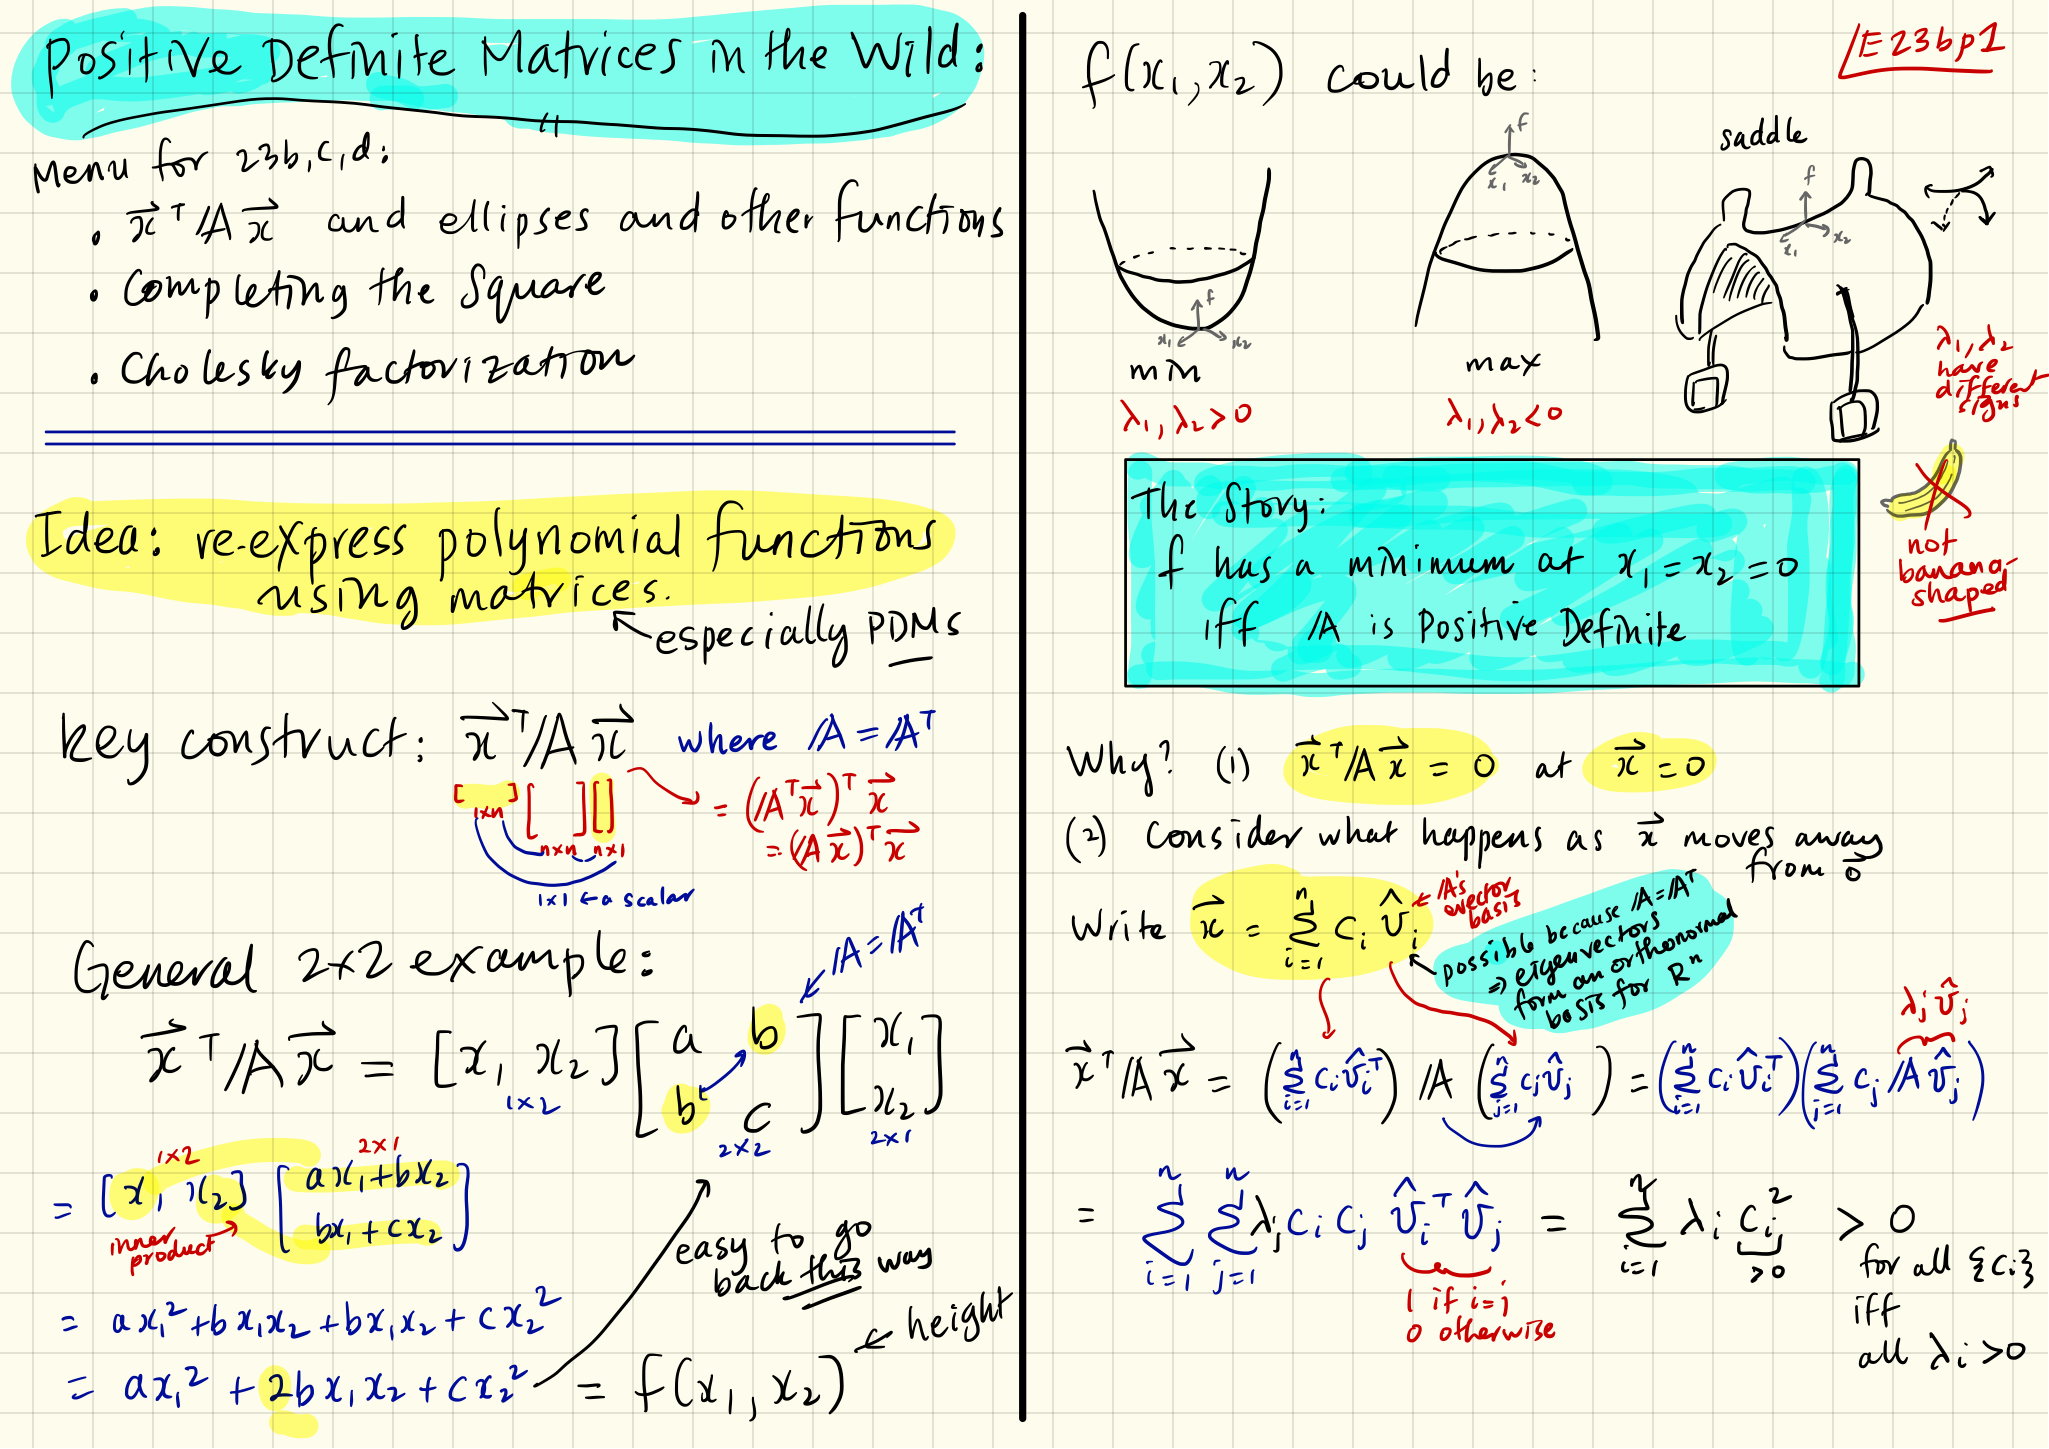 Positive Definite Matrices in the Wild:
Menu for 23b,c,d:
• x⃗ᵀ𝔸x⃗ and ellipses and other functions
• Completing the Square
• Cholesky factorization
Idea: re-express polynomial functions
using matrices.
especially PDMs
key construct: x⃗ᵀ𝔸x⃗ where 𝔸 = 𝔸ᵀ
[ ] [ ] [ ]
1×n
n×n n×1
= (𝔸ᵀx⃗)ᵀ x⃗
= (𝔸x⃗)ᵀ x⃗
1×1 ← a scalar
General 2×2 example:
𝔸 = 𝔸ᵀ
x⃗ᵀ𝔸x⃗ = [x₁ x₂] [a b; b c] [x₁; x₂]
1×2 2×2 2×1
1×2 2×1
= [x₁ x₂] [ax₁+bx₂; bx₁+cx₂]
inner
product
= ax₁² + bx₁x₂ + bx₁x₂ + cx₂²
= ax₁² + 2bx₁x₂ + cx₂² = f(x₁, x₂)
easy to go
back this way
← height
E23bp1
f(x₁, x₂) could be:
f x₁ x₂
min
λ₁, λ₂ > 0
f x₁ x₂
max
λ₁, λ₂ < 0
saddle
f x₁ x₂
λ₁, λ₂
have
different
signs
not
banana-
shaped
The Story:
f has a minimum at x₁ = x₂ = 0
iff 𝔸 is Positive Definite
Why? (1) x⃗ᵀ𝔸x⃗ = 0 at x⃗ = 0
(2) Consider what happens as x⃗ moves away
from 0⃗
Write x⃗ = Σⁿᵢ₌₁ cᵢ v̂ᵢ
← 𝔸's
evector
basis
possible because 𝔸 = 𝔸ᵀ
⇒ eigenvectors
form an orthonormal
basis for Rⁿ
λⱼ v̂ⱼ
x⃗ᵀ𝔸x⃗ = (Σⁿᵢ₌₁ cᵢ v̂ᵢᵀ) 𝔸 (Σⁿⱼ₌₁ cⱼ v̂ⱼ) = (Σⁿᵢ₌₁ cᵢ v̂ᵢᵀ)(Σⁿⱼ₌₁ cⱼ 𝔸 v̂ⱼ)
= Σⁿᵢ₌₁ Σⁿⱼ₌₁ λⱼ cᵢ cⱼ v̂ᵢᵀ v̂ⱼ = Σⁿᵢ₌₁ λᵢ cᵢ² > 0
1 if i=j
0 otherwise
>0
for all {cᵢ}
iff
all λᵢ > 0